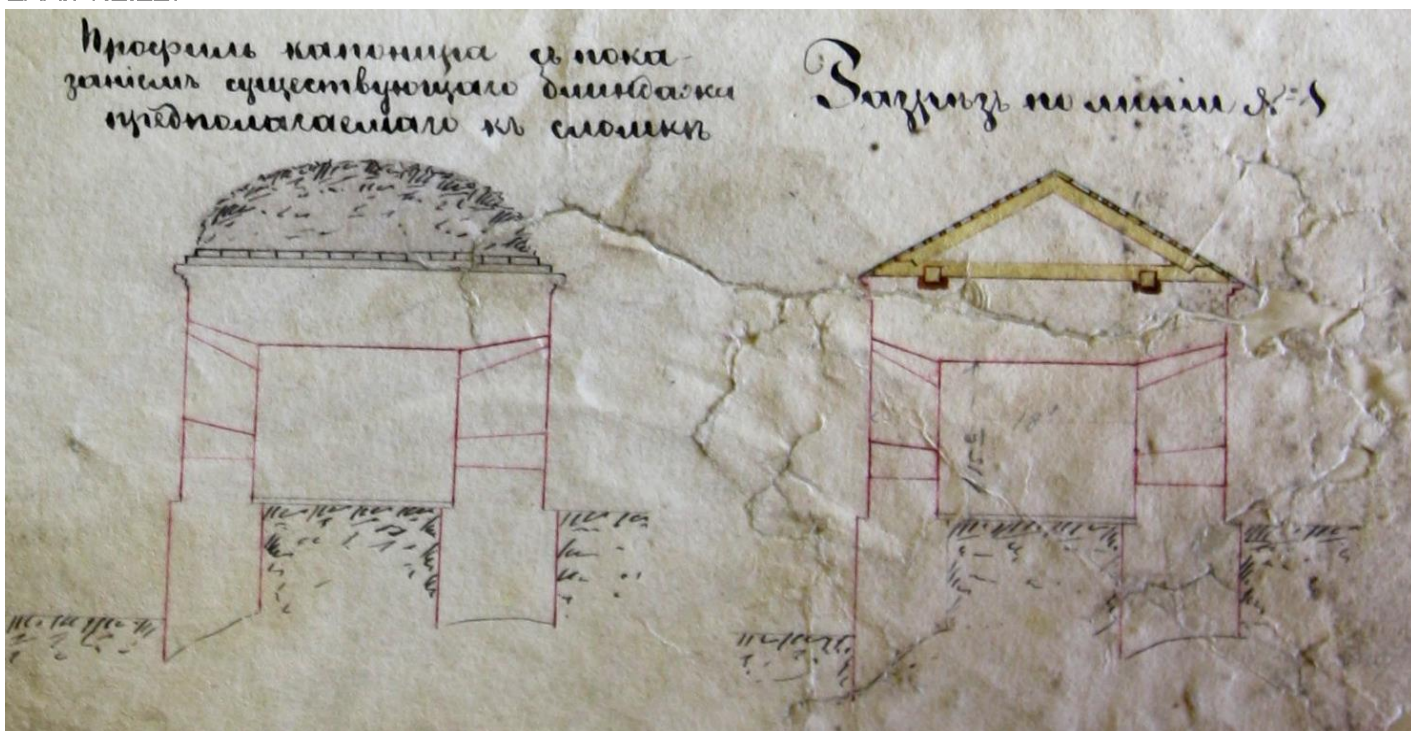 Профиль капонира съ пока-
заніемъ существующаго блиндажа
предполагаемаго къ сломкѣ
Разрѣзъ по линіи